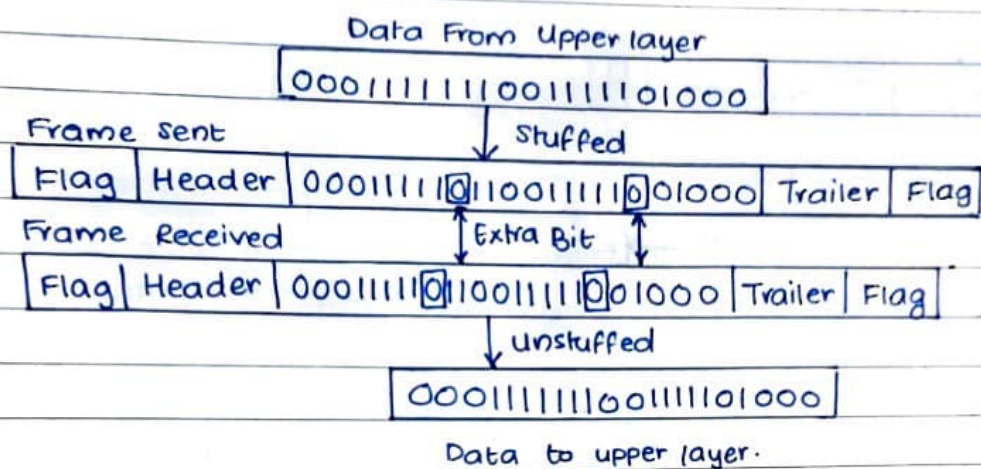 Data From Upper layer
0001111111001111101000
Frame sent
stuffed
Flag Header 000111110110011111001000 Trailer Flag
Frame Received
Extra Bit
Flag Header 000111110110011111001000 Trailer Flag
unstuffed
0001111111001111101000
Data to upper layer.